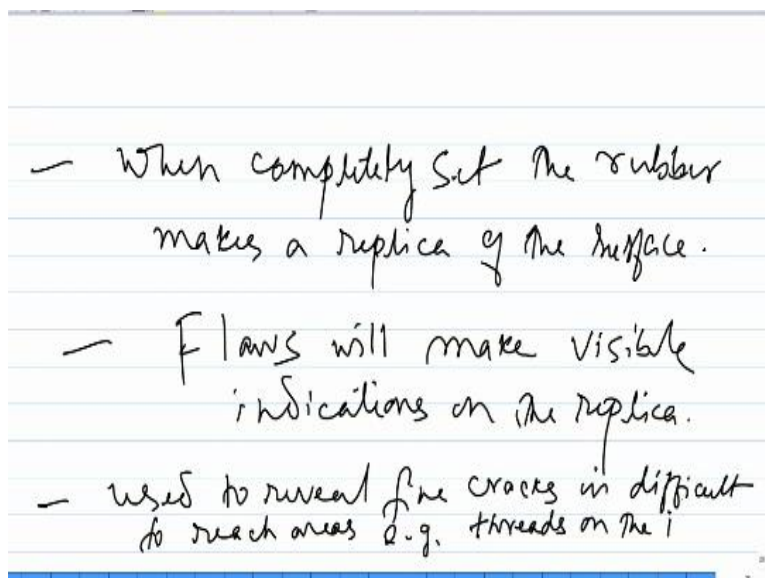 — When completely set the rubber
makes a replica of the surface.
— Flaws will make visible
indications on the replica.
— used to reveal fine cracks in difficult
to reach areas e.g. threads on the i